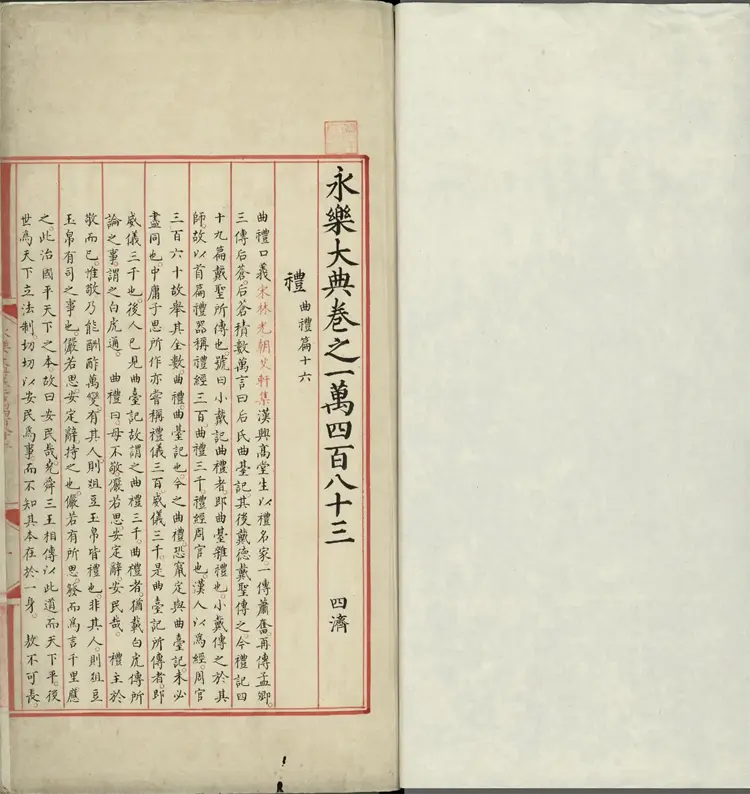 永樂大典卷之一萬四百八十三 四濟
禮 曲禮篇十六
曲禮口義宋林光朝艾軒集漢興高堂生以禮名家一傳蕭奮。再傳孟卿。
三傳后蒼。后蒼積數萬言曰后氏曲臺記其後戴德戴聖傳之。今禮記四
十九篇戴聖所傳也。號曰小戴記曲禮者。即曲臺雜禮也。小戴傳之於其
師。故以首篇禮器稱禮經三百。曲禮三千。禮經周官也。漢人以為經。周官
三百六十故舉其全數。曲禮曲臺記也。今之曲禮。恐竄定與曲臺記。未必
盡同也。中庸子思所作亦嘗稱禮儀三百威儀三千。是曲臺記所傳者。即
威儀三千也。後人已見曲臺記故謂之曲禮三千。曲禮者。猶載白虎傳所
論之事。謂之白虎通。 曲禮曰。毋不敬儼若思。安定辭。安民哉。 禮主於
敬而已。惟敬乃能酬酢萬變。有其人。則俎豆玉帛皆禮也。非其人。則俎豆
玉帛有司之事也。儼若思。安定辭。持之也。儼若有所思。發而為言千里應
之。此治國平天下之本。故曰安民哉。堯舜三王相傳以此道而天下平。後
世為天下立法制。切切以安民為事。而不知其本在於一身。 敖不可長。